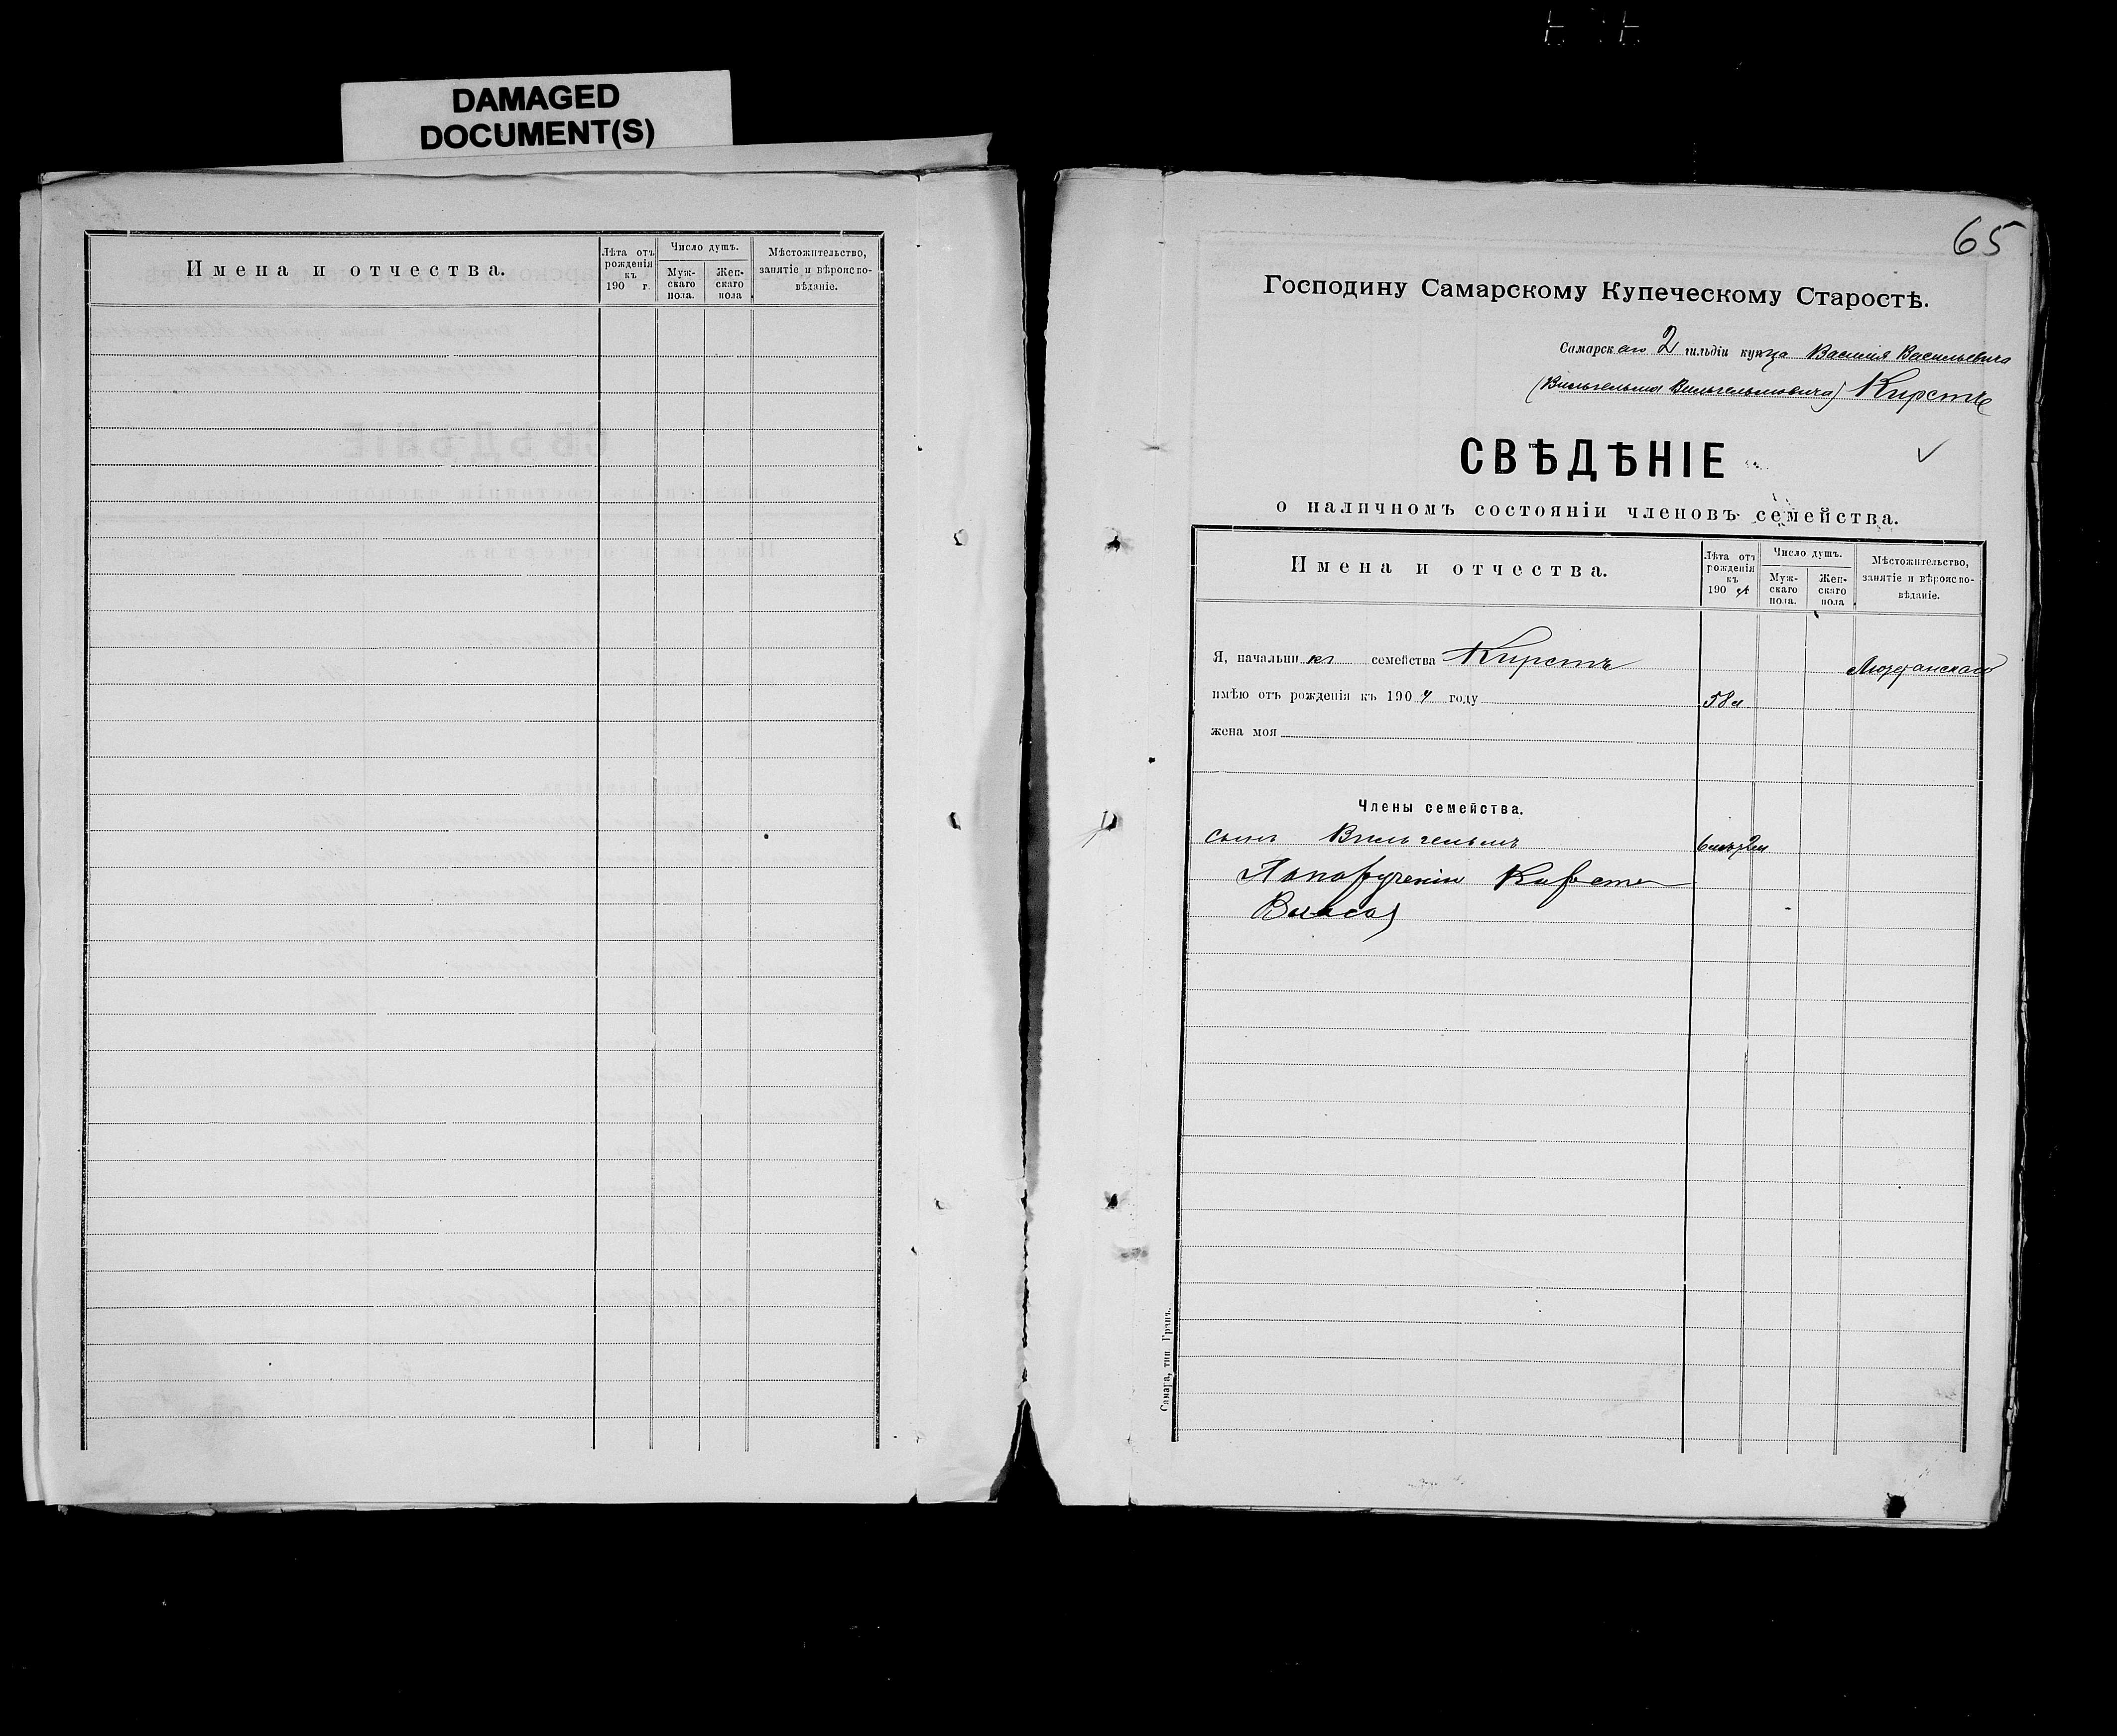 DAMAGED
DOCUMENT(S)
Имена и отчества.
Лѣта отъ рожденія къ 190 г.
Число душъ.
Муж-скаго пола.
Жен-скаго пола
Мѣстожительство, занятіе и вѣроиспо-вѣданіе.
65
Господину Самарскому Купеческому Старостѣ.
Самарскаго 2 гильдіи купца Василія Васильевича
(Вильгельма Вильгельмовича) Кирстъ
СВѢДѢНІЕ
о наличномъ состояніи членовъ семейства.
Имена и отчества.
Лѣта отъ рожденія къ 190
Число душъ.
Муж-скаго пола.
Жен-скаго пола
Мѣстожительство, занятіе и вѣроиспо-вѣданіе.
Я, начальникъ семейства Кирстъ
имѣю отъ рожденія къ 190 году 58
жена моя
Члены семейства.
сынъ Вильгельмъ
Кирстъ
Самара, тип. Гранъ.